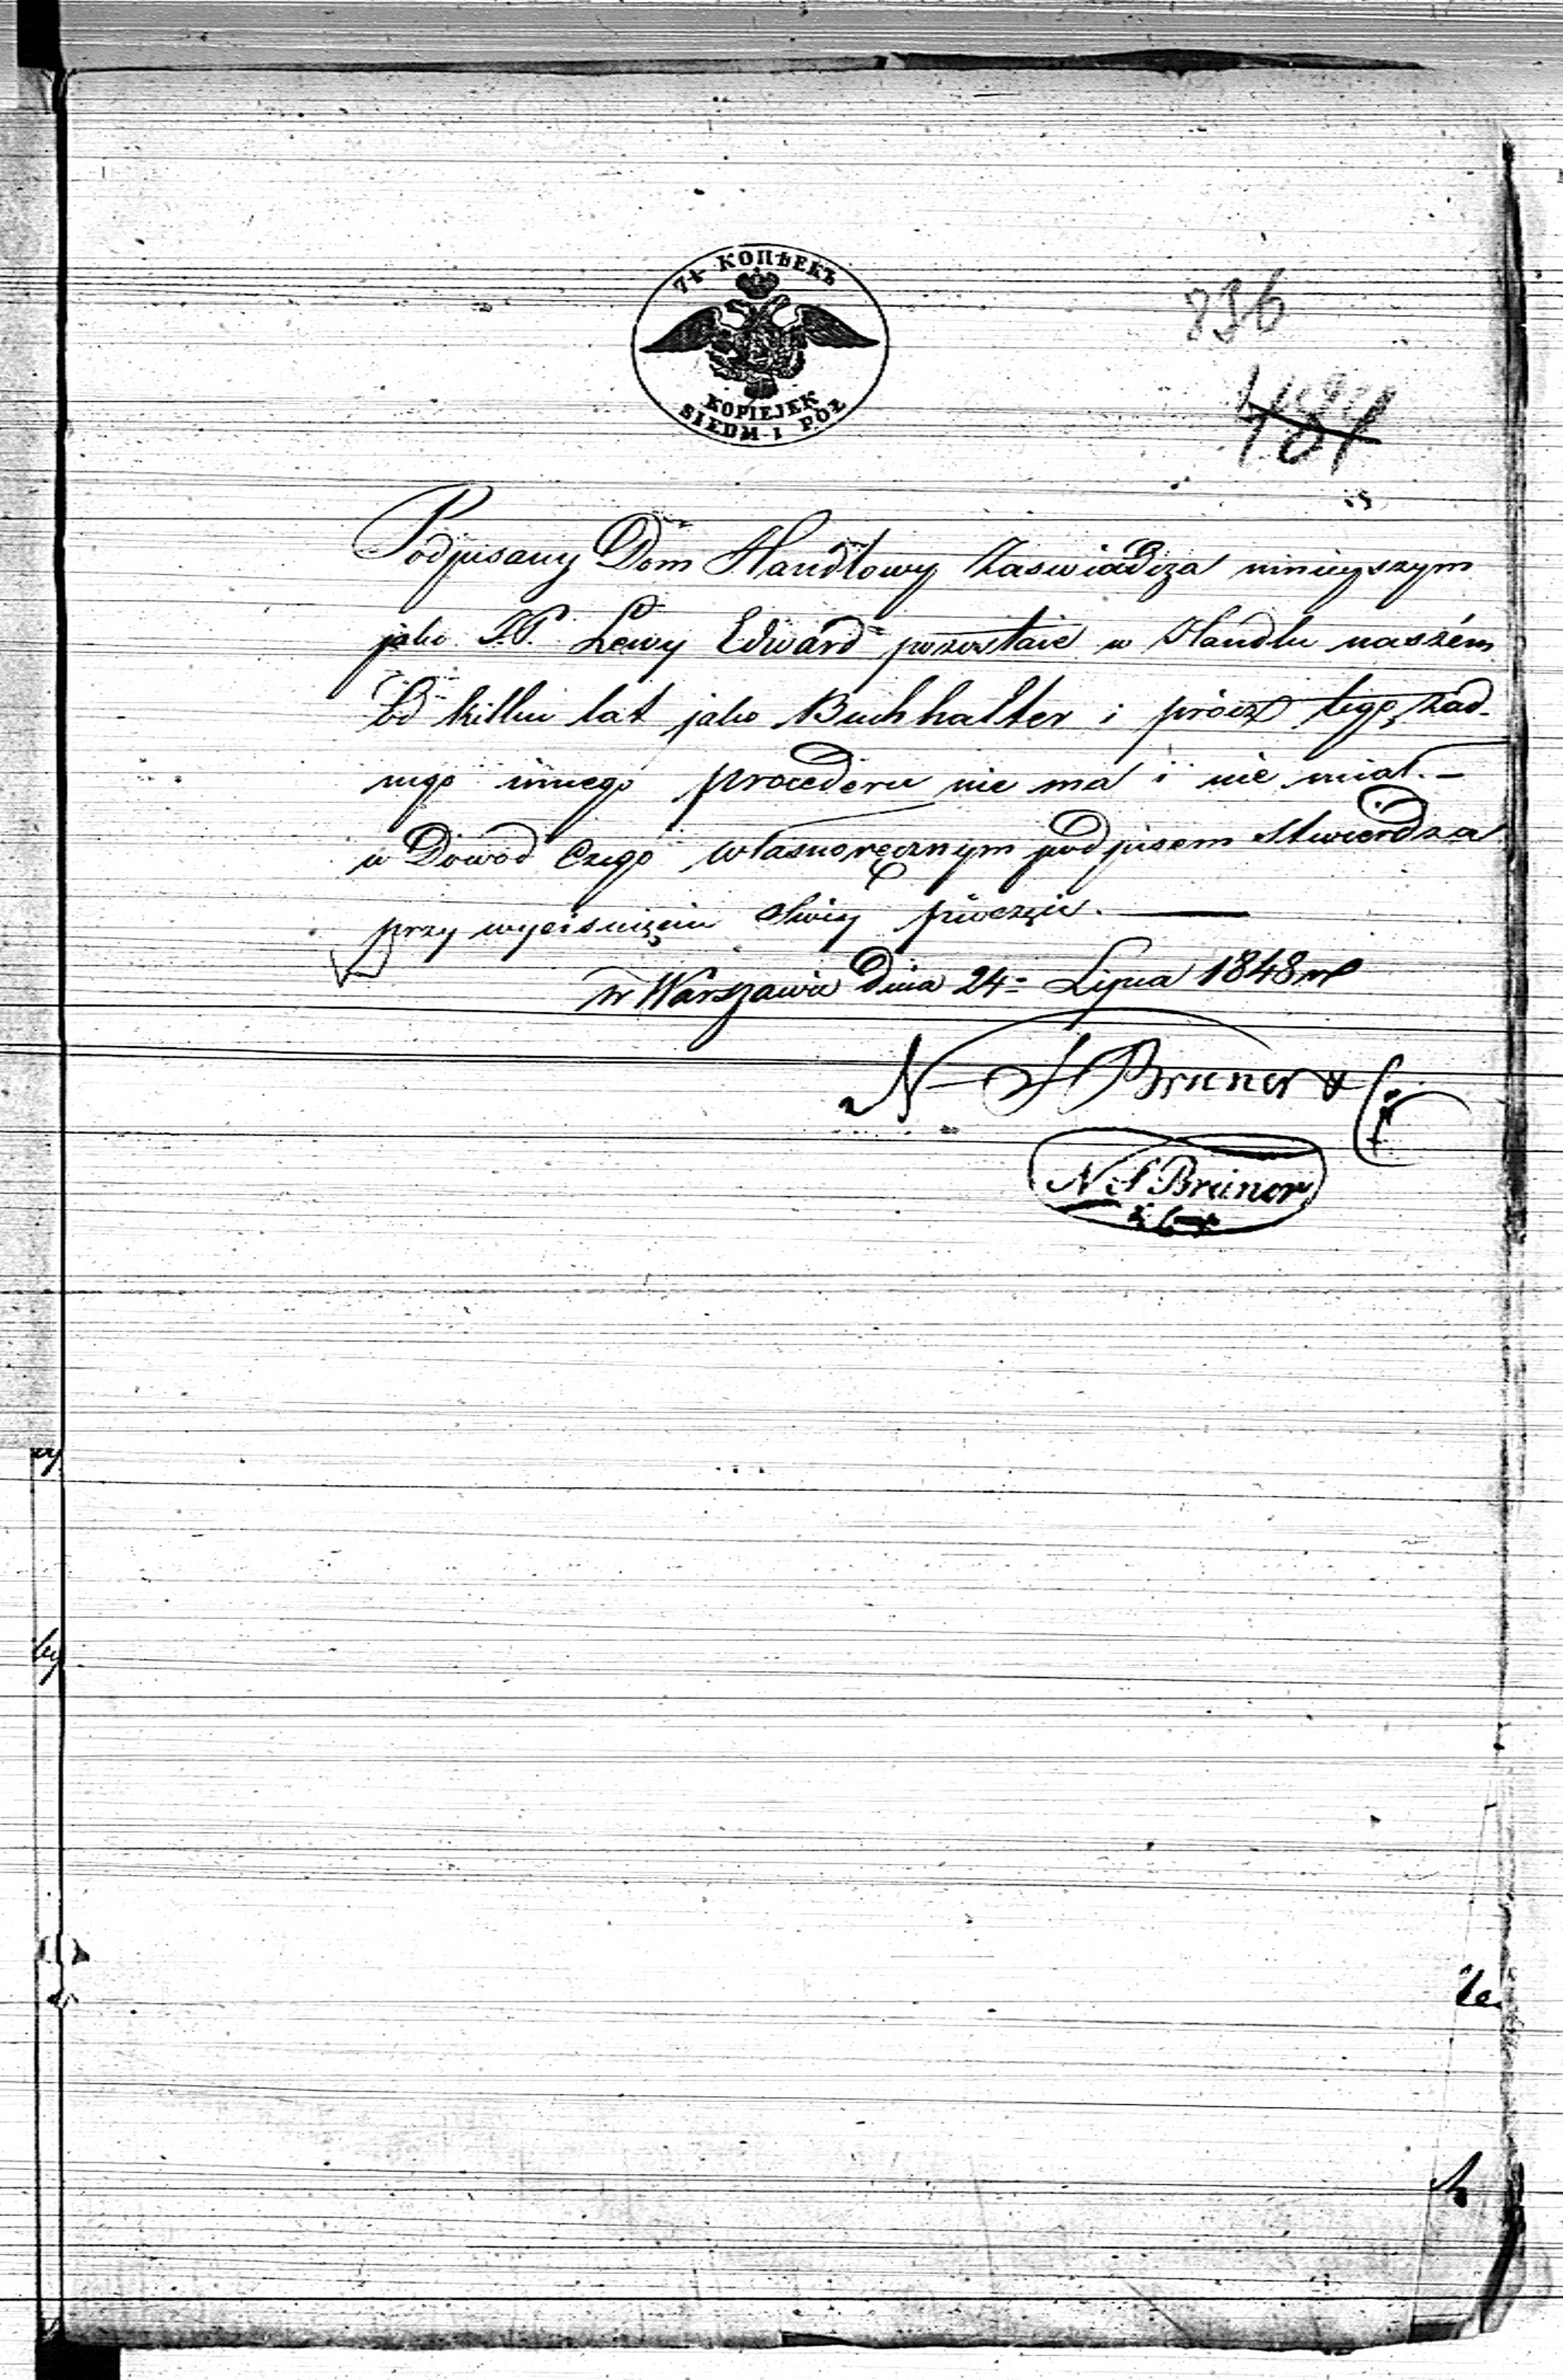 7½ КОПѢЕКЪ
KOPIEJEK
SIEDM I PÓŁ
836
487
Podpisany Dom Handlowy Zaswiadcza ninieyszym
jako J.P. Lewy Edward pozostaie w Handlu naszém
od kilku lat jako Buchhalter i prócz tego żad-
nego innego procederu nie ma i nie miał. —
w Dowód Czego własnoręcznym podpisem stwierdza
przy wyciśnięciu swey pieczęci. —
w Warszawie Dnia 24 Lipca 1848 r
N S Bruner & C
N S Bruner
& C